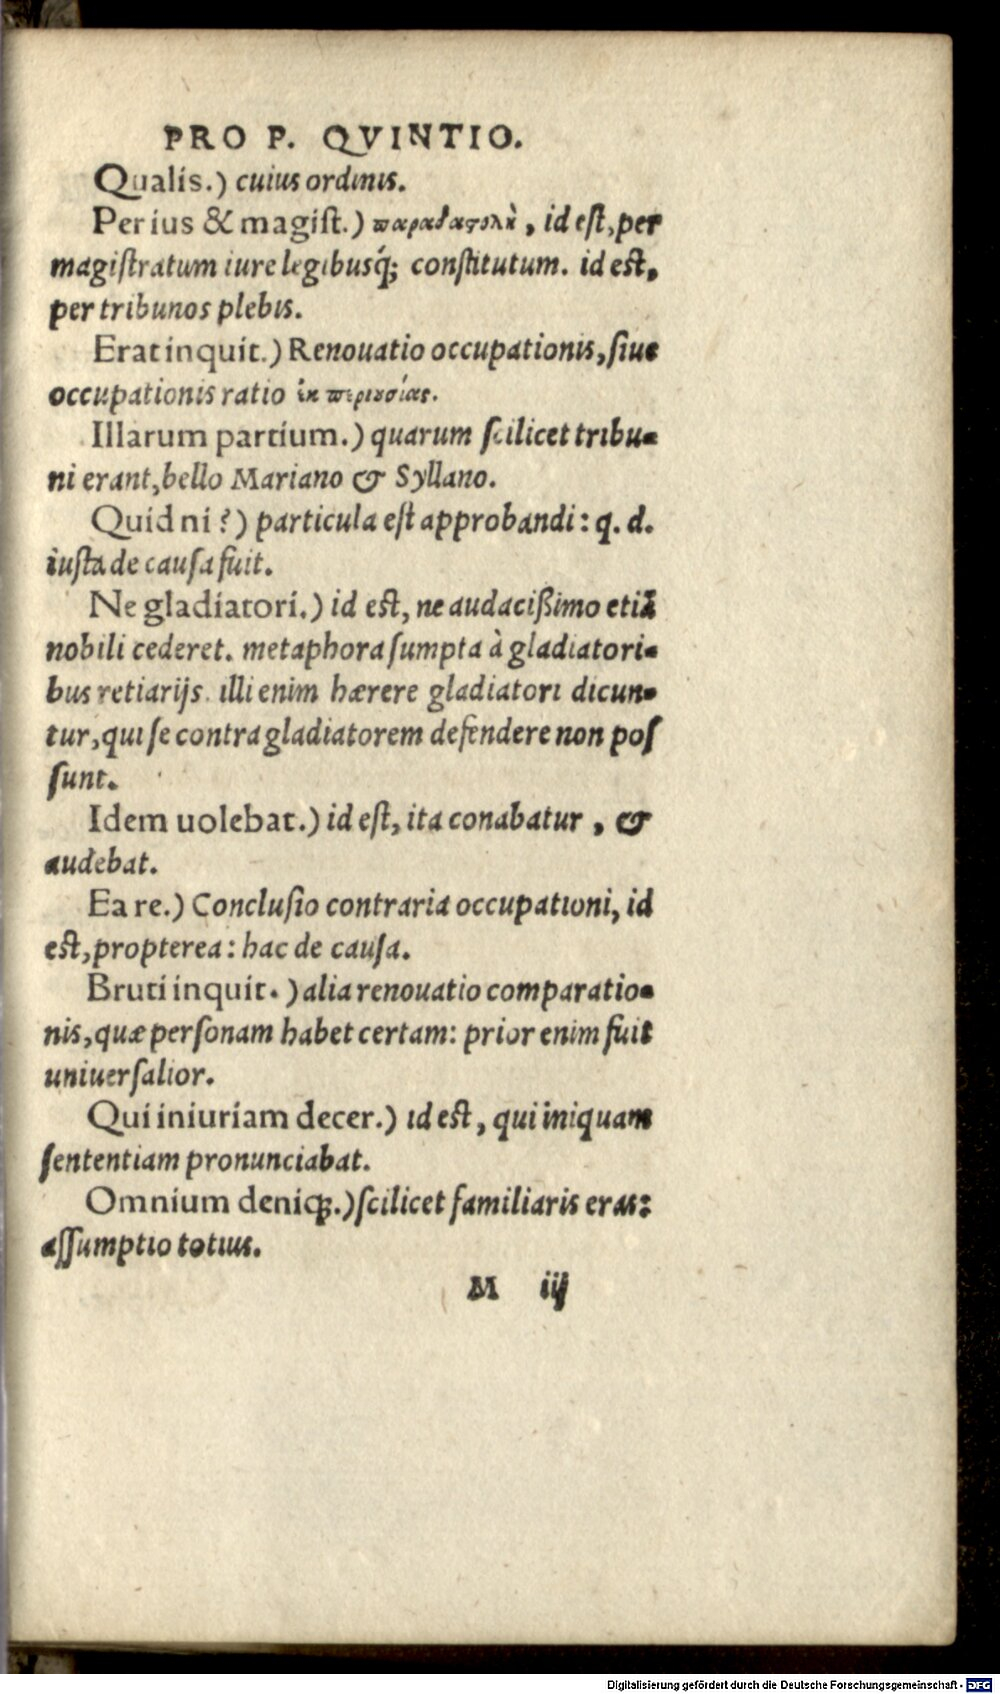 PRO P. QVINTIO.
Qualis.) cuius ordinis.
Per ius & magiſt.) παραδιαστολὴ, id eſt, per
magiſtratum iure legibusq́; conſtitutum. id eſt,
per tribunos plebis.
Erat inquit.) Renouatio occupationis, ſiue
occupationis ratio ἐκ περιουσίας.
Illarum partium.) quarum ſcilicet tribu-
ni erant, bello Mariano & Syllano.
Quid ni?) particula eſt approbandi: q. d.
iuſta de cauſa fuit.
Ne gladiatori.) id eſt, ne audacißimo etiã
nobili cederet. metaphora ſumpta à gladiatori-
bus retiarijs. illi enim hærere gladiatori dicun-
tur, qui ſe contra gladiatorem defendere non poſ
ſunt.
Idem uolebat.) id eſt, ita conabatur, &
audebat.
Ea re.) Concluſio contraria occupationi, id
eſt, propterea: hac de cauſa.
Bruti inquit.) alia renouatio comparatio-
nis, quæ perſonam habet certam: prior enim fuit
uniuerſalior.
Qui iniuriam decer.) id eſt, qui iniquam
ſententiam pronunciabat.
Omnium deniq;.) ſcilicet familiaris eras:
aſſumptio totius.
M iij
Digitalisierung gefördert durch die Deutsche Forschungsgemeinschaft - DFG